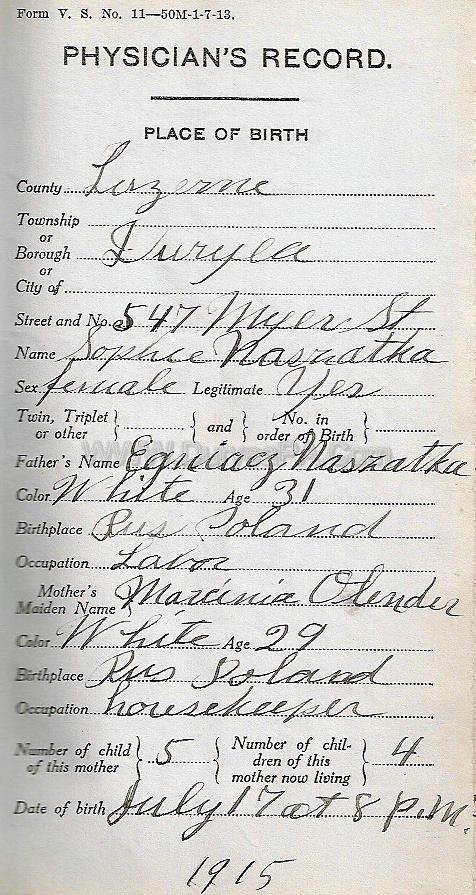 Form V. S. No. 11—50M-1-7-13.
PHYSICIAN'S RECORD.
PLACE OF BIRTH
County Luzerne
Township
or
Borough Duryea
or
City of
Street and No. 547 Myer St
Name Sophie Naszatka
Sex female Legitimate Yes
Twin, Triplet or other } { and } No. in order of Birth }
Father's Name Egniacz Naszatka
Color White Age 31
Birthplace Rus Poland
Occupation Labor
Mother's Maiden Name Marcinia Olender
Color White Age 29
Birthplace Rus Poland
Occupation housekeeper
Number of child of this mother } 5 { Number of children of this mother now living } 4
Date of birth July 17 at 8 P.M.
1915